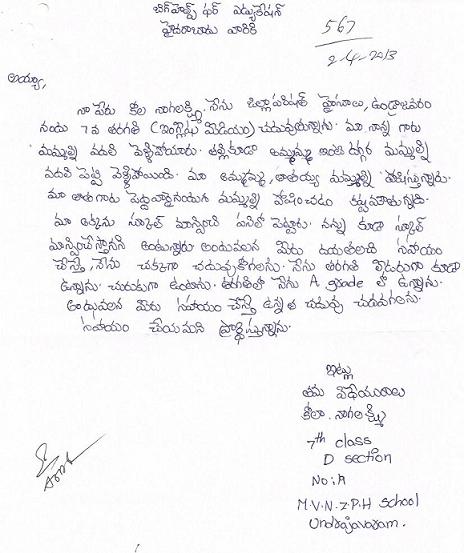 బిగ్‌హెల్ప్ ఫర్ ఎడ్యుకేషన్
హైదరాబాదు వారికి
567
2-4-2013
అయ్యా,
నా పేరు కీల నాగలక్ష్మి. నేను జిల్లాపరిషత్ హైస్కూలు, ఉండ్రాజవరం
నందు 7వ తరగతి (ఇంగ్లీషు మీడియం) చదువుచున్నాను. మా నాన్న గారు
మమ్మల్ని వదిలి వెళ్ళిపోయారు. తల్లికూడా అమ్మమ్మ ఇంటి దగ్గర మమ్మల్ని
వదిలి పెట్టి వెళ్ళిపోయింది. మా అమ్మమ్మ, తాతయ్య మమ్మల్ని పోషిస్తున్నారు.
మా తాతగారు పెద్దవారైనందున మమ్మల్ని పోషించడం కష్టమౌతున్నది.
మా అక్కను స్కూల్ మాన్పించి పనిలో పెట్టారు. నన్ను కూడా స్కూల్
మాన్పించేస్తానని అంటున్నారు అందువలన మీరు దయతలచి సహాయం
చేస్తే, నేను చక్కగా చదువుకోగలను. నేను తరగతి లీడరుగా కూడా
ఉన్నాను. చురుకుగా ఉంటాను. తరగతిలో నేను A grade లో ఉన్నాను.
అందువలన మీరు సహాయం చేస్తే ఉన్నత చదువు చదవగలను.
సహాయం చేయమని ప్రార్థిస్తున్నాను.
ఇట్లు
తమ విధేయురాలు
కీలా. నాగలక్ష్మి
7th class
D section
No: A
M.V.N.Z.P.H School
Undrajavaram.